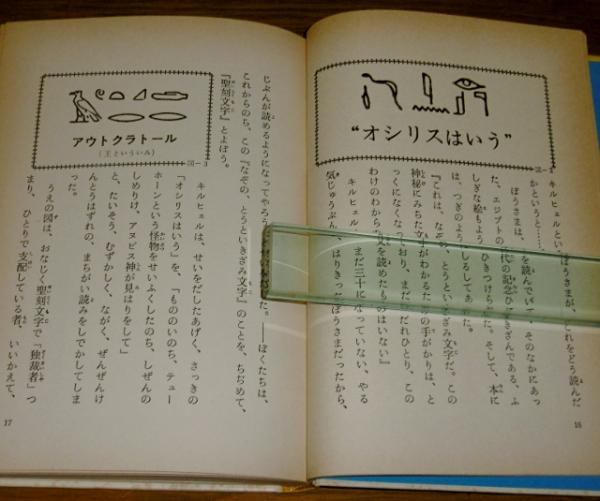 “オシリスはいう”
図—2
キルヒェルというぼうさまが、これをどう読んだ
かというと……。
ぼうさまは、を読んでいて、そのなかにあっ
た、エジプトの代の記念ひにきざんである、ふ
しぎな絵もように ひきつけられた。そして、本に
は、つぎのようにしるしてあった。
『これは、なぞの、とうといきざみ文字だ。この
神秘にみちた文字がわかるための手がかりは、と
っくになくなっており、まだ、だれひとり、この
わけのわからない文を読めたものはいない』
キルヒェルは、まだ三十になっていない、やる
気じゅうぶんの、はりきったぼうさまだったから、
16
じぶんが読めるようになってやろうした。——ぼくたちは、
これからのち、この『なぞの、とうといきざみ文字』のことを、ちぢめて、
『聖刻文字』とよぼう。
アウトクラトール
(王といういみ)
図—3
キルヒェルは、せいをだしたあげく、さっきの
「オシリスはいう」を、「もののいのち、テュー
ホーンという怪物をせいふくしたのち、しぜんの
しめりけ、アヌビス神が見はりをして」
と、たいそう、むずかしく、ながく、ぜんぜんけ
んとうはずれの、まちがい読みをしでかしてしま
った。
うえの図は、おなじく聖刻文字で「独裁者」つ
まり、ひとりで支配している者、いいかえて、
17